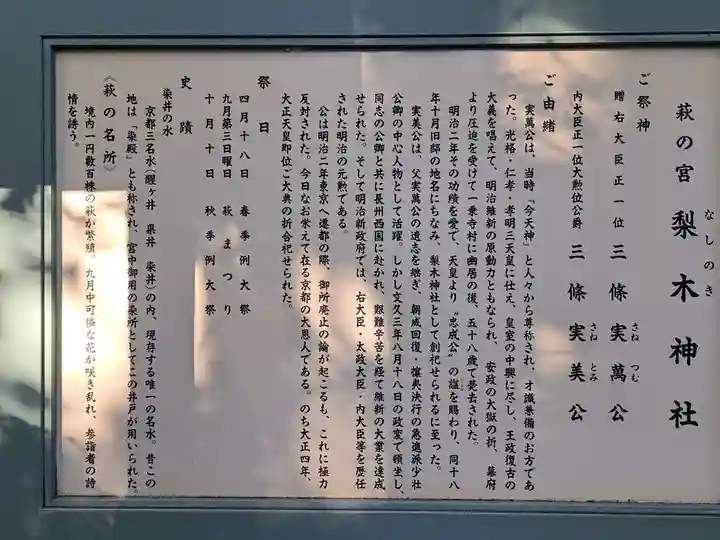 萩の宮 梨木神社
なしのき
ご祭神
贈右大臣正一位 三條実萬公
さね つむ
内大臣正一位大勲位公爵 三條実美公
さね とみ
ご由緒
実萬公は、当時「今天神」と人々から尊称され、才識兼備のお方であ
った。光格・仁孝・孝明三天皇に仕え、皇室の中興に尽し、王政復古の
大義を唱えて、明治維新の原動力ともなられ、安政の大獄の折、幕府
より圧迫を受けて一乗寺村に幽居の後、五十八歳で薨去された。
明治二年その功績を愛で、天皇より〝忠成公〟の諡を賜わり、同十八
年十月旧邸の地名にちなみ、梨木神社として創祀せられるに至った。
実美公は、父実萬公の遺志を継ぎ、朝威回復・攘夷決行の急進派少壮
公卿の中心人物として活躍。しかし文久三年八月十八日の政変で頓坐し、
同志の公卿と共に長州西国に赴かれ、艱難辛苦を経て維新の大業を達成
せられた。そして明治新政府では、右大臣・太政大臣・内大臣等を歴任
された明治の元勲である。
公は明治二年東京へ遷都の際、御所廃止の論が起こるも、これに極力
反対された。今日なお栄えて在る京都の大恩人である。のち大正四年、
大正天皇即位ご大典の折合祀せられた。
祭日
四月十八日 春季例大祭
九月第三日曜日 萩まつり
十月十日 秋季例大祭
史蹟
染井の水
京都三名水(醒ヶ井 県井 染井)の内、現存する唯一の名水。昔この
地は「染殿」とも称され、宮中御用の染所としてこの井戸が用いられた。
《萩の名所》
境内一円数百株の萩が繁殖。九月中可憐な花が咲き乱れ、参詣者の詩
情を誘う。